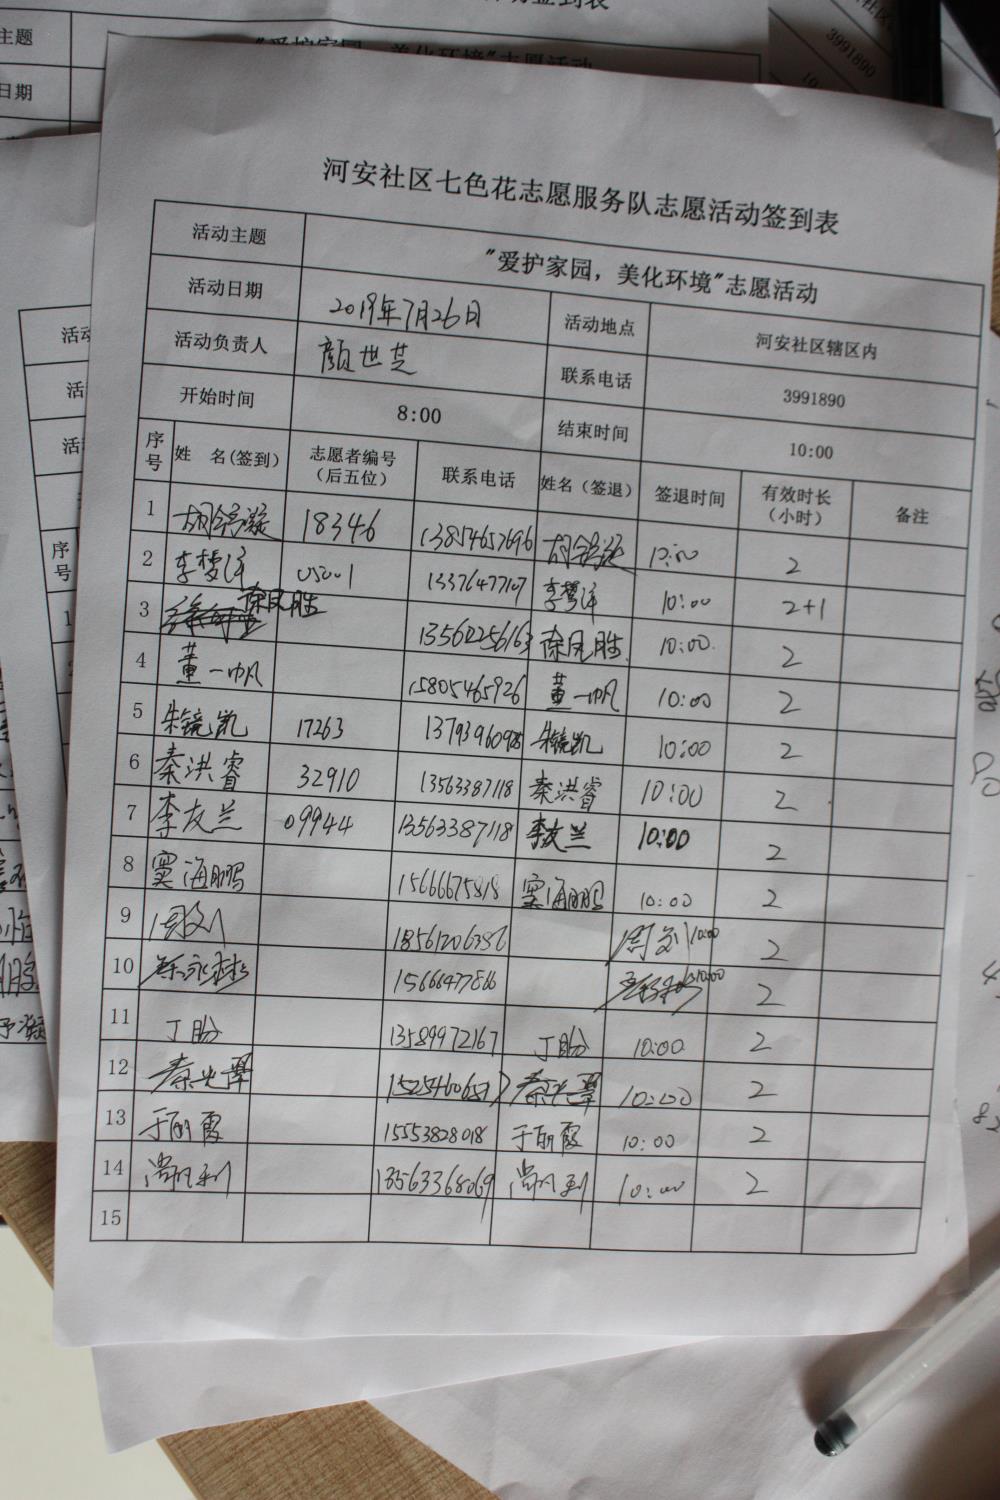 河安社区七色花志愿服务队志愿活动签到表
活动主题 "爱护家园，美化环境"志愿活动
活动日期 2019年7月26日 活动地点 河安社区辖区内
活动负责人 颜世芝 联系电话 3991890
开始时间 8:00 结束时间 10:00
序号 姓 名(签到) 志愿者编号（后五位） 联系电话 姓名（签退） 签退时间 有效时长（小时） 备注
1 18346 13854657696 10:00 2
2 李梦洋 05001 13376477107 李梦洋 10:00 2+1
3 徐凤胜 13561256163 徐凤胜 10:00 2
4 董一帆 15805465926 董一帆 10:00 2
5 朱镜凯 17263 朱镜凯 10:00 2
6 秦洪睿 32910 13563387118 秦洪睿 10:00 2
7 李友兰 09944 13563387118 李友兰 10:00 2
8 窦海鹏 15666675818 窦海鹏 10:00 2
9 18561206356 10:00 2
10 15666477866 10:00 2
11 丁盼 13589972167 丁盼 10:00 2
12 10:00 2
13 于丽霞 15553828018 于丽霞 10:00 2
14 13563368069 10:00 2
15